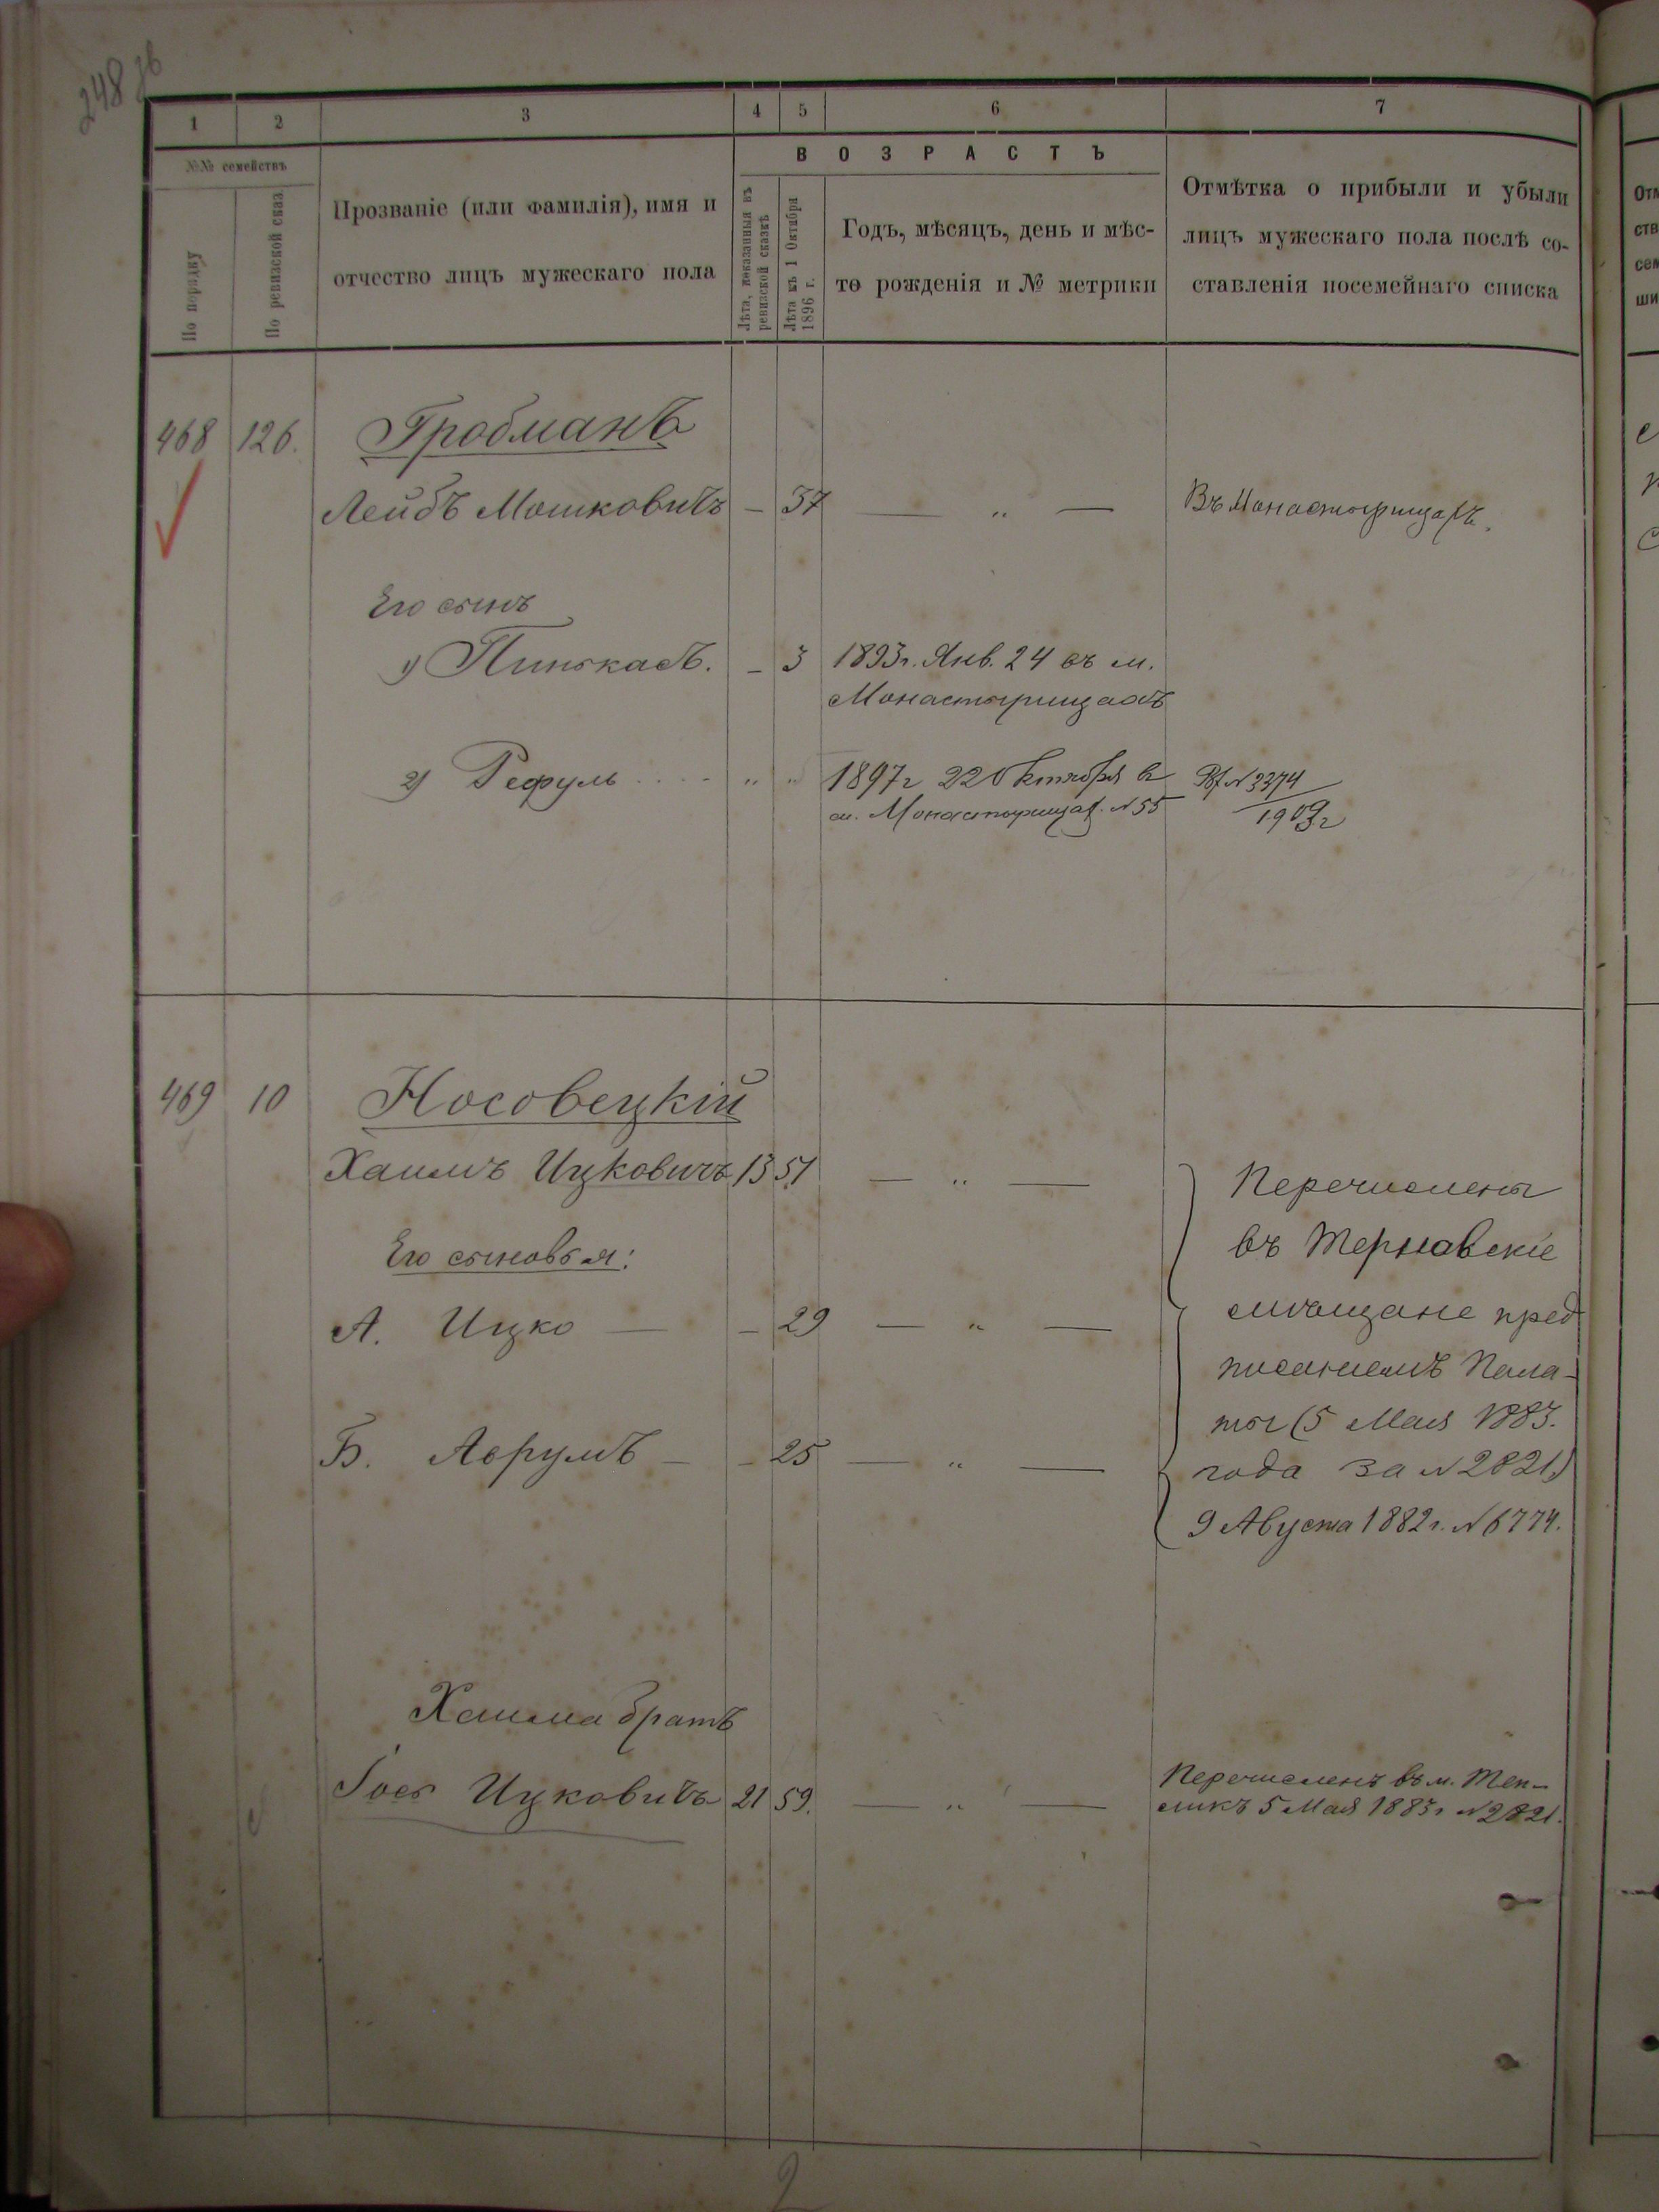 248 об
1 2 3 4 5 6 7
№№ семействъ
По порядку
По ревизской сказ
Прозваніе (или Фамилія), имя и
отчество лицъ мужескаго пола
ВОЗРАСТЪ
Лѣта, показанныя въ
ревизской сказкѣ
Лѣта къ 1 Октября
1896 г.
Годъ, мѣсяцъ, день и мѣс-
то рожденія и № метрики
Отмѣтка о прибыли и убыли
лицъ мужескаго пола послѣ со-
ставленія посемейнаго списка
468 126. Гробманъ
Лейбъ Мошковичъ — 37 — „ — Въ Монастырищахъ.
Его сынъ
1) Пинькасъ. — 3 1893 г. Янв. 24 въ м.
Монастырищахъ
2) Рефуль „ „ 1897 г 22 Октября в № 3374
м. Монастырищах. № 55 1909 г
469 10 Носовецкій
Хаимъ Ицковичъ 13 51 — „ — Перечислены
въ Терновскіе
Его сыновья:
мѣщане пред
А. Ицко — — 29 — „ —
писаніемъ Пала-
ты (5 Мая 1883.
Б. Аврумъ — — 25 — „ —
года за № 2821)
9 Августа 1882 г. № 6774.
Хаима братъ
Іось Ицковичъ 21 59. — „ — Перечисленъ въ м. Теп-
ликъ 5 Мая 1883 г № 2821.
2